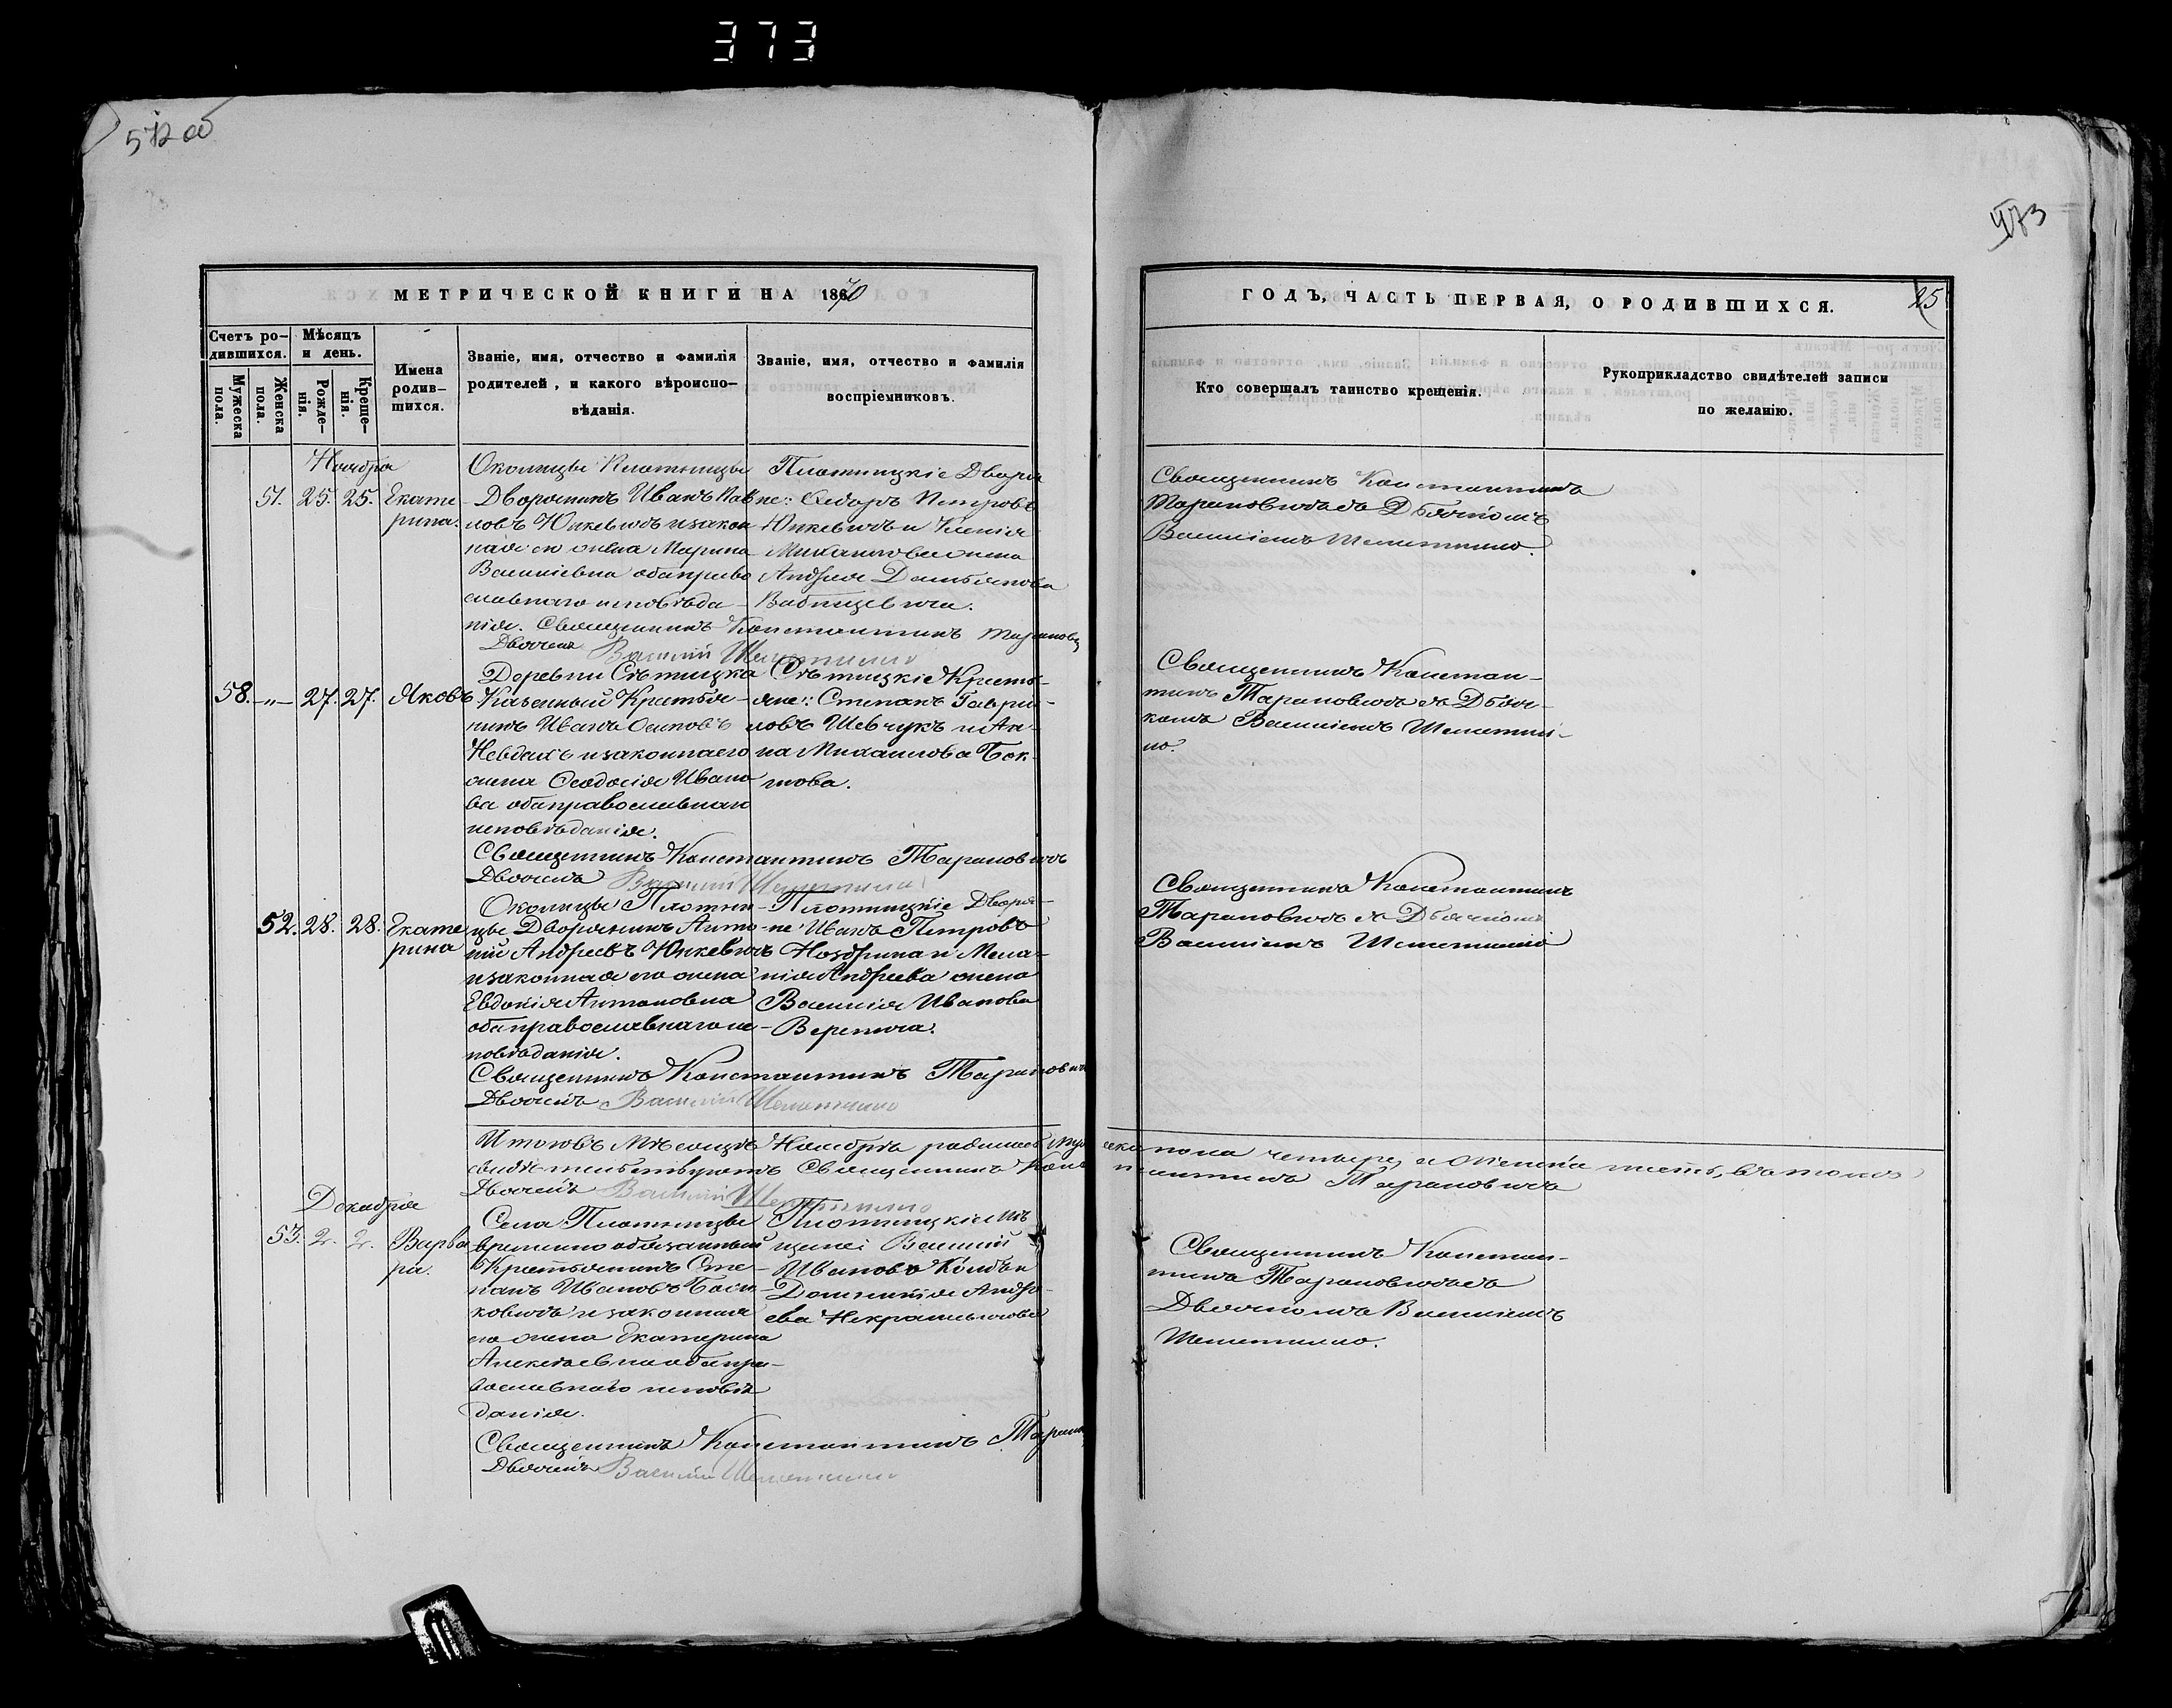 373
572 об
573
МЕТРИЧЕСКОЙ КНИГИ НА 1870
Счетъ ро-
дившихся.
Мѣсяцъ
и день.
Мужеска
пола.
Женска
пола.
Рожде-
нія.
Креще-
нія.
Имена
родив-
шихся.
Званіе, имя, отчество и фамилія
родителей, и какого вѣроиспо-
вѣданія.
Званіе, имя, отчество и фамилія
воспріемниковъ.
ГОДЪ, ЧАСТЬ ПЕРВАЯ, О РОДИВШИХСЯ.
25
Кто совершалъ таинство крещенія.
Рукоприкладство свидѣтелей записи
по желанію.
Ноября
51. 25. 25. Екате
рина.
Околицы Плотницы
Дворянинъ Иванъ Пав
ловъ Юнкевичъ и закон
ная его жена Марина
Василіевна оба право
славнаго исповѣда-
нія. Священникъ Константинъ Таранови
Дьячекъ Василій
Плотницкіе Дворя
не: Ѳедоръ Петровъ
Юнкевичъ и Ксенія
Михаилова жена
Андрея Демьянова
Вабищевича.
Священникъ Константинъ
Тарановичъ съ Дьячкомъ
Василіемъ
58. -"- 27. 27. Яковъ
Деревни Сѣтицка
Казенный Крестья-
нинъ Иванъ Осиповъ
Невдахъ и законная его
жена Ѳеодосія Ивано
ва оба православнаго
исповѣданія.
Священникъ Константинъ Тарановичъ
Дьячекъ Василій
Сѣтицкіе Кресть-
яне: Степанъ Гаври-
ловъ Шевчукъ и Ан-
на Михаилова Бок-
това.
Священникъ Констан-
тинъ Тарановичъ съ Дьяч-
комъ Василіемъ
52. 28. 28. Екате
рина
Околицы Плотни-
цы Дворянинъ Анто-
ній Андреевъ Юнкевичъ
и законная его жена
Евдокія Антоновна
оба православнаго ис-
повѣданія.
Священникъ Константинъ Таранови
Дьячекъ Василій
Плотницкіе Дворя-
не: Иванъ Петровъ
Ноздрина и Мела-
нія Андреева жена
Василія Иванова
Веренича.
Священникъ Константинъ
Тарановичъ съ Дьячкомъ
Василіемъ
Итого въ Мѣсяцѣ Ноябрѣ родилось муж
еска пола четыре, а женска шесть, въ томъ
свидѣтельствуютъ Священникъ Конс
тантинъ Тарановичъ
Дьячекъ Василій
Декабря
53. 2. 2. Варва
ра.
Села Плотницы
временно обязанный
Крестьянинъ Сте-
панъ Ивановъ
ковичъ и законная
его жена Екатерина
Алексѣевна оба пра-
вославнаго исповѣ
данія.
Священникъ Константинъ Таран
Дьячекъ Василій
Плотницкіе Мѣ
щане: Василій
Ивановъ
Домникія Андре-
ева
Священникъ Констан-
тинъ Тарановичъ съ
Дьячкомъ Василіемъ